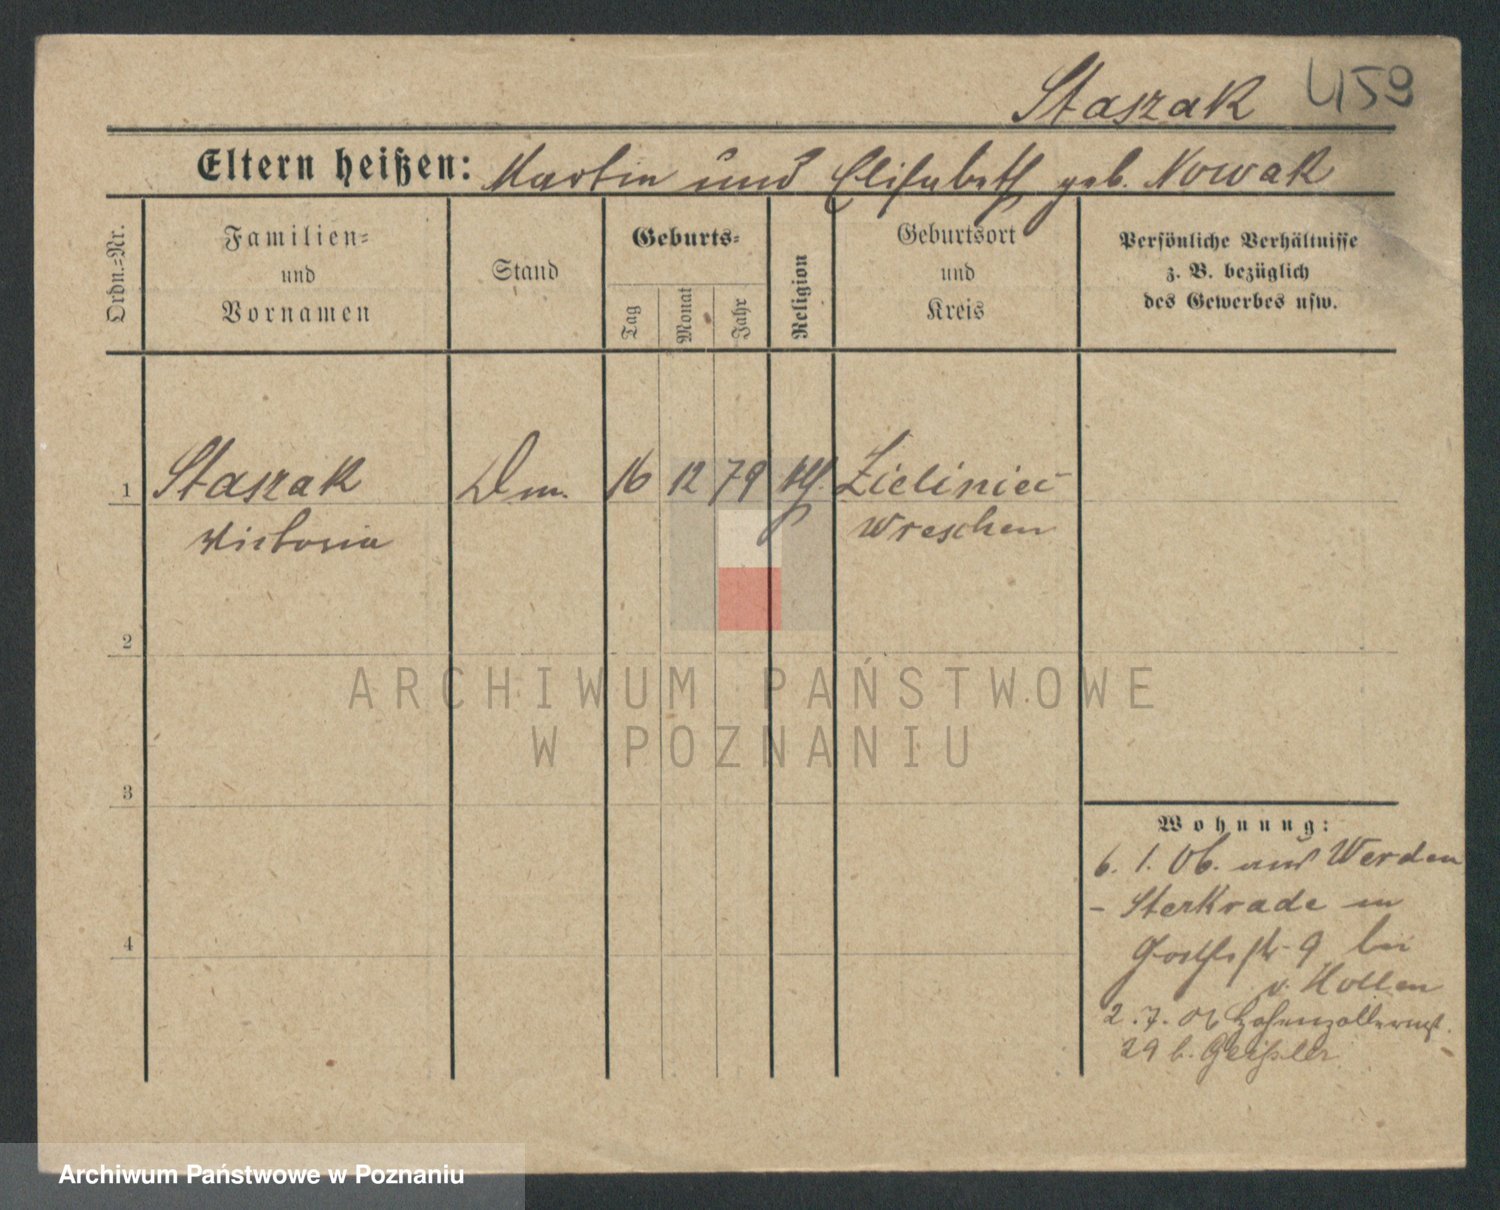 Staszak 459
Eltern heißen: Martin und Elisabeth geb. Nowak
Ordn.-Nr.
Familien-
und
Vornamen
Stand
Geburts-
Tag
Monat
Jahr
Religion
Geburtsort
und
Kreis
Persönliche Verhältnisse
z. B. bezüglich
des Gewerbes usw.
1 Staszak Dm. 16 12 79 kth. Zieliniec
Victoria Wreschen
2
3
4
ARCHIWUM PAŃSTWOWE
W POZNANIU
Wohnung:
6. 1. 06. aus Werden
- Sterkrade in
9 bei
v. Hollen
2. 7. 06 Hohenzollernst.
29 b. Geißler
Archiwum Państwowe w Poznaniu